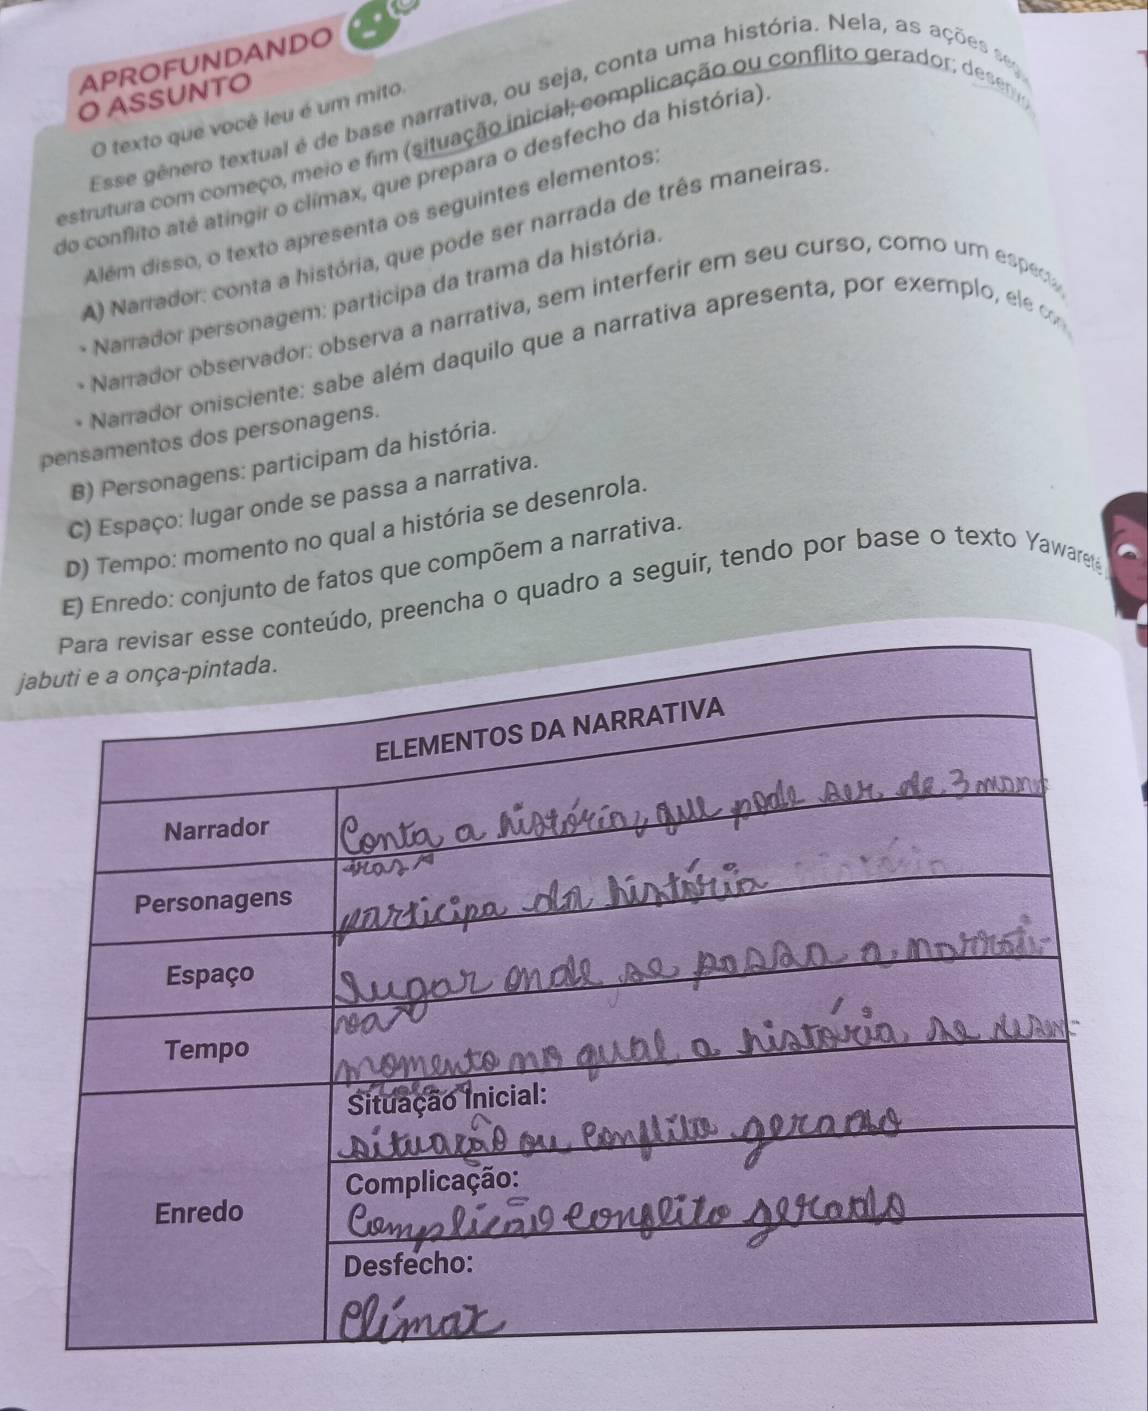 APROFUNDANDO
O ASSUNTO
O texto que você leu é um mito.
Esse gênero textual é de base narrativa, ou seja, conta uma história. Nela, as ações
estrutura com começo, meio e fim (situação inicial; complicação ou conflito gerador;
do conflito até atingir o clímax, que prepara o desfecho da história).
Além disso, o texto apresenta os seguintes elementos:
A) Narrador: conta a história, que pode ser narrada de três maneiras.
• Narrador personagem: participa da trama da história.
• Narrador observador: observa a narrativa, sem interferir em seu curso, como um
• Narrador onisciente: sabe além daquilo que a narrativa apresenta, por exemplo, ele
pensamentos dos personagens.
B) Personagens: participam da história.
C) Espaço: lugar onde se passa a narrativa.
D) Tempo: momento no qual a história se desenrola.
E) Enredo: conjunto de fatos que compõem a narrativa.
Para revisar esse conteúdo, preencha o quadro a seguir, tendo por base o texto Yawareté
jabuti e a onça-pintada.
ELEMENTOS DA NARRATIVA
Narrador
Conta a história, que pode ser de 3
Personagens
participa da história
Espaço
Lugar onde se passa a
Tempo
momento no qual a história se
Enredo
Situação Inicial:
situação ou conflito
Complicação:
conflito
Desfecho:
Clímax